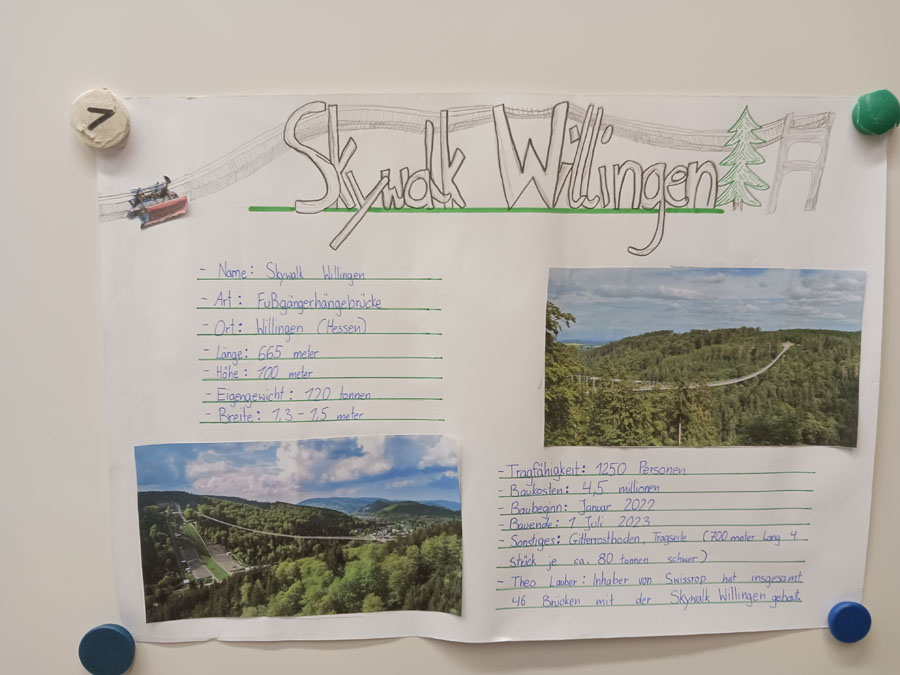 Skywalk Willingen
- Name: Skywalk Willingen
- Art: Fußgängerhängebrücke
- Ort: Willingen (Hessen)
- Länge: 665 meter
- Höhe: 100 meter
- Eigengewicht: 120 tonnen
- Breite: 1,3 - 1,5 meter
- Tragfähigkeit: 1250 Personen
- Baukosten: 4,5 millionen
- Baubeginn: Januar 2022
- Bauende: 1 Juli 2023
- Sonstiges: Gitterrostboden, Tragseile (700 meter lang 4
stück je ca. 80 tonnen schwer)
- Theo Lauber: Inhaber von Swissrop hat insgesamt
46 Brücken mit der Skywalk Willingen gebaut.